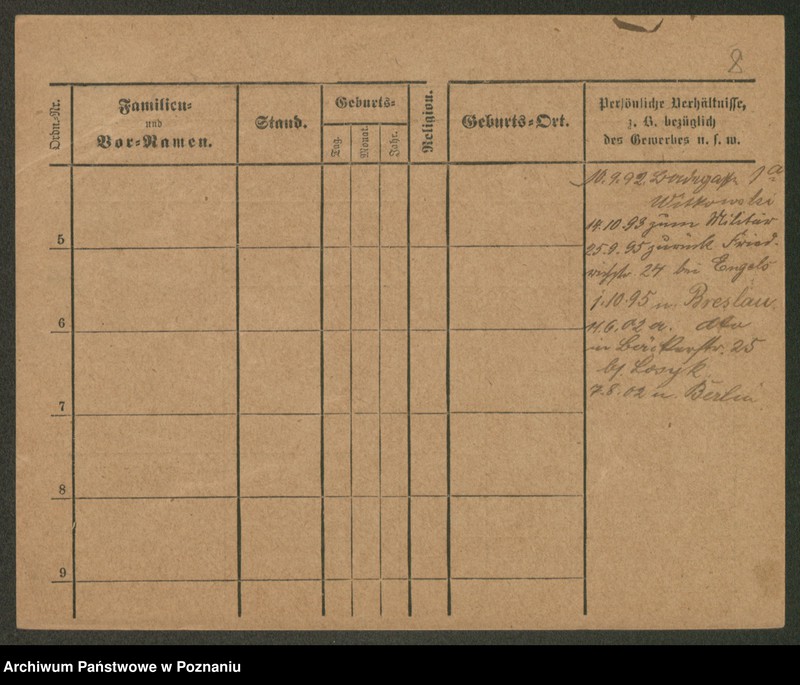 8
Ordn.-Nr.
Familien-
und
Vor-Namen.
Stand.
Geburts-
Tag.
Monat.
Jahr.
Religion.
Geburts-Ort.
Persönliche Verhältnisse,
z. B. bezüglich
des Gewerbes u. s. w.
10.9.92. Badegasse 1a
Witkowski
14.10.93 zum Militär
25.9.95 zurück Fried-
richstr. 24 bei Engels
1.10.95 n. Breslau
11.6.02 a. dto
in Bäckerstr. 25
bj. Losyk
7.8.02 n. Berlin
5
6
7
8
9
Archiwum Państwowe w Poznaniu